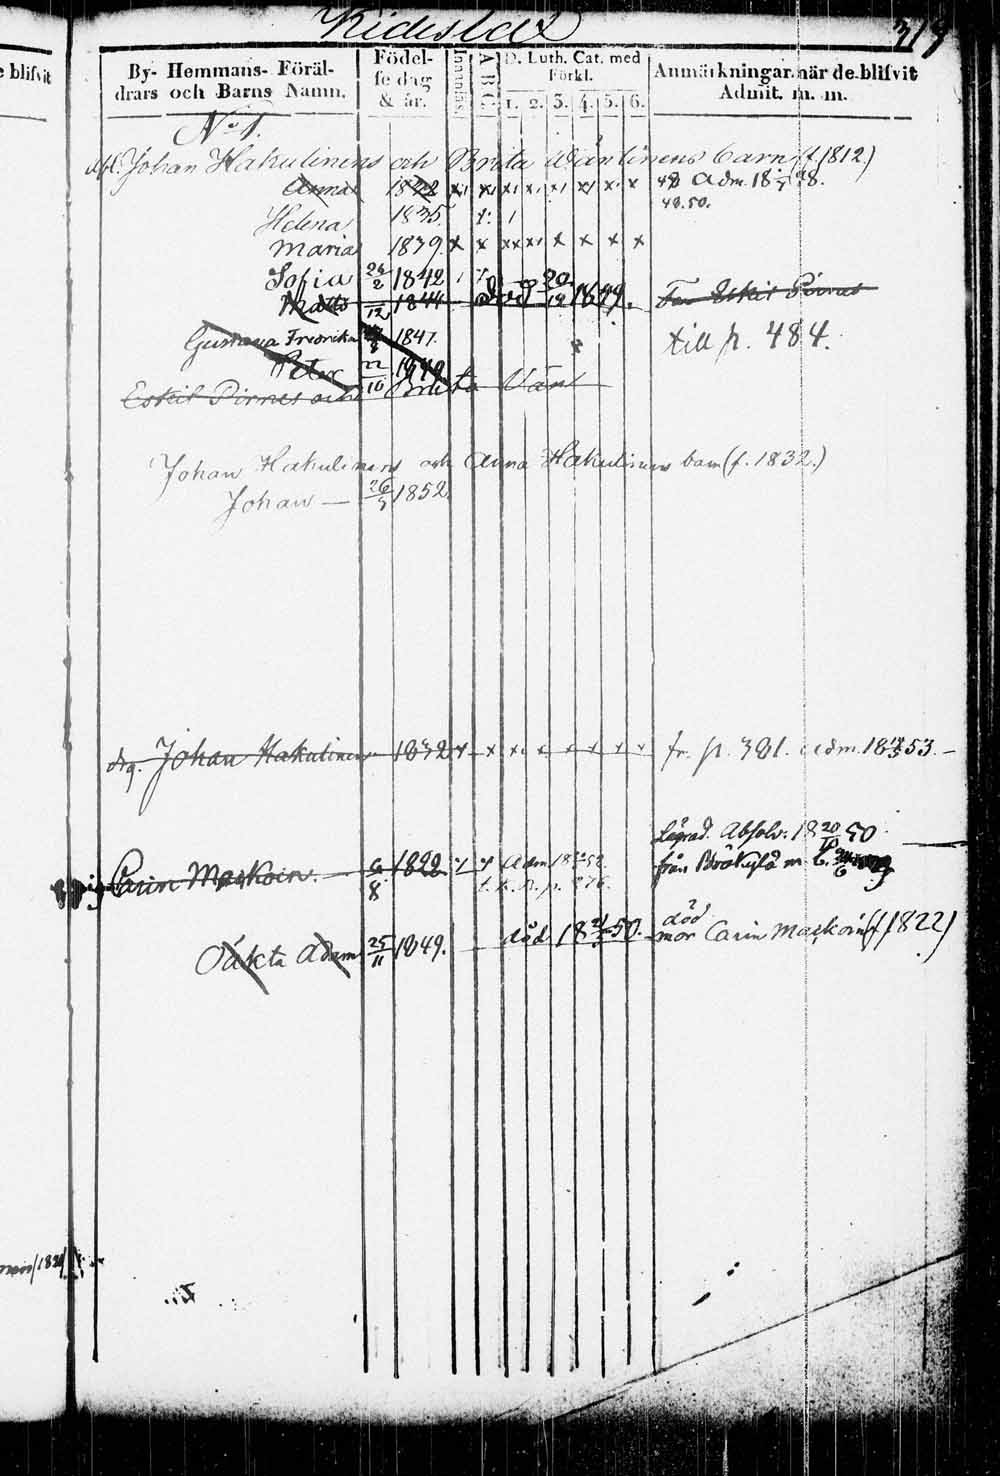 319
By- Hemmans- Föräldrars och Barns Namn.
Födelsedag & år.
Innanläs.
A B C.
D. Luth. Cat. med Förkl.
1. 2. 3. 4. 5. 6.
Anmärkningar när de blifvit Admit. m. m.
e blifvit
No 1.
Johan Hakulinens och Brita Wänlinens barn (f. 1812.)
Anna 1832 x x x x x x x x 48 Adm. 18 48.
48.50.
Helena 1835.
Maria 1839. x x x x x x x x
Sofia 24/2 1842
Mats /12 1844 död 20/12 1849. Far Eskil Pirnes
Gustava Fredrika 1847. till p. 484.
Peter 22/10 1849
Eskil Pirnes och Brita Vän
Johan Hakulinens och Anna Hakulinens barn (f. 1832.)
Johan — 26/3 1852
drg. Johan Hakulinen 1832 x x x x x x x x fr. p. 381. adm. 18 53. –
Lägrad. Absolv. 18 20/10 50
pig Carin Maskoin. 6/8 1822 Adm 18 52. från m. b.
t. k. n. p. 876.
Oäkta Adam 25/11 1849. död 18 50. död mor Carin Maskoin (f 1822)